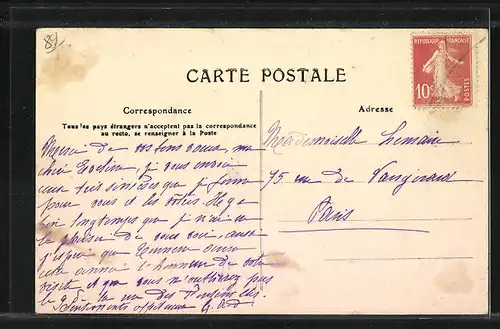 89
CARTE POSTALE
REPUBLIQUE FRANÇAISE
10c
POSTES
Correspondance
Tous les pays étrangers n'acceptent pas la correspondance
au recto, se renseigner à la Poste
Adresse
Merci de vos bons vœux, ma
je vous envoie
que je forme
pour vous et les vôtres. Il y a
bien longtemps que je n'ai eu
le plaisir de vous voir, aussi
j'espère que
cette année l'honneur de votre
visite et que vous n'oublierez pas
la rue des
Mademoiselle Lemaire
75 rue de Vaugirard
Paris